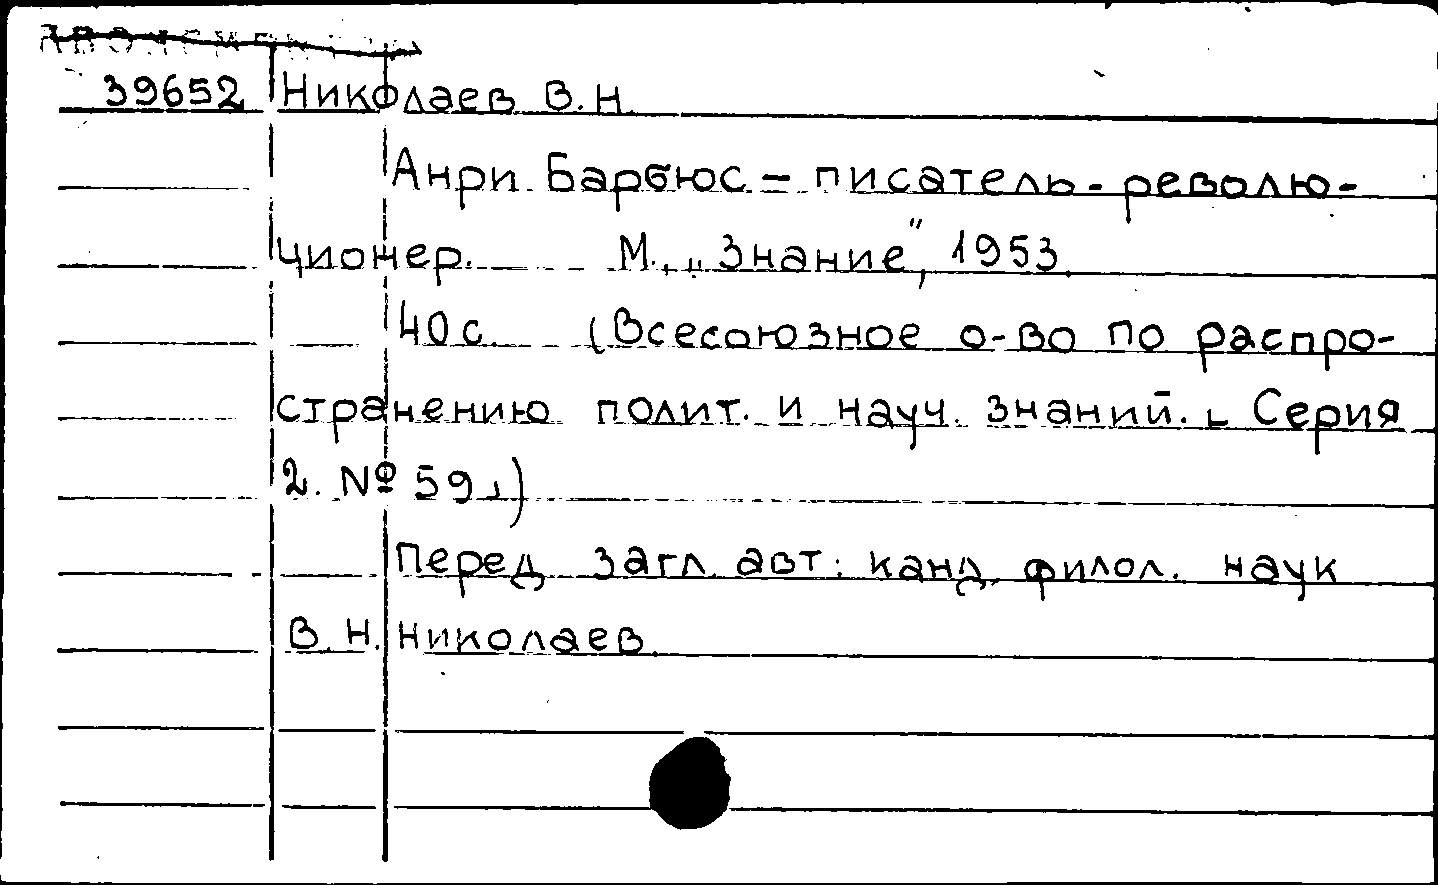 39652 Николаев В.Н.
Анри Барбюс – писатель-револю-
ционер. М., „Знание", 1953.
40 с. (Всесоюзное о-во по распро-
странению полит. и науч. знаний. [Серия
2. № 59])
Перед загл. авт: канд. филол. наук
В. Н. Николаев.